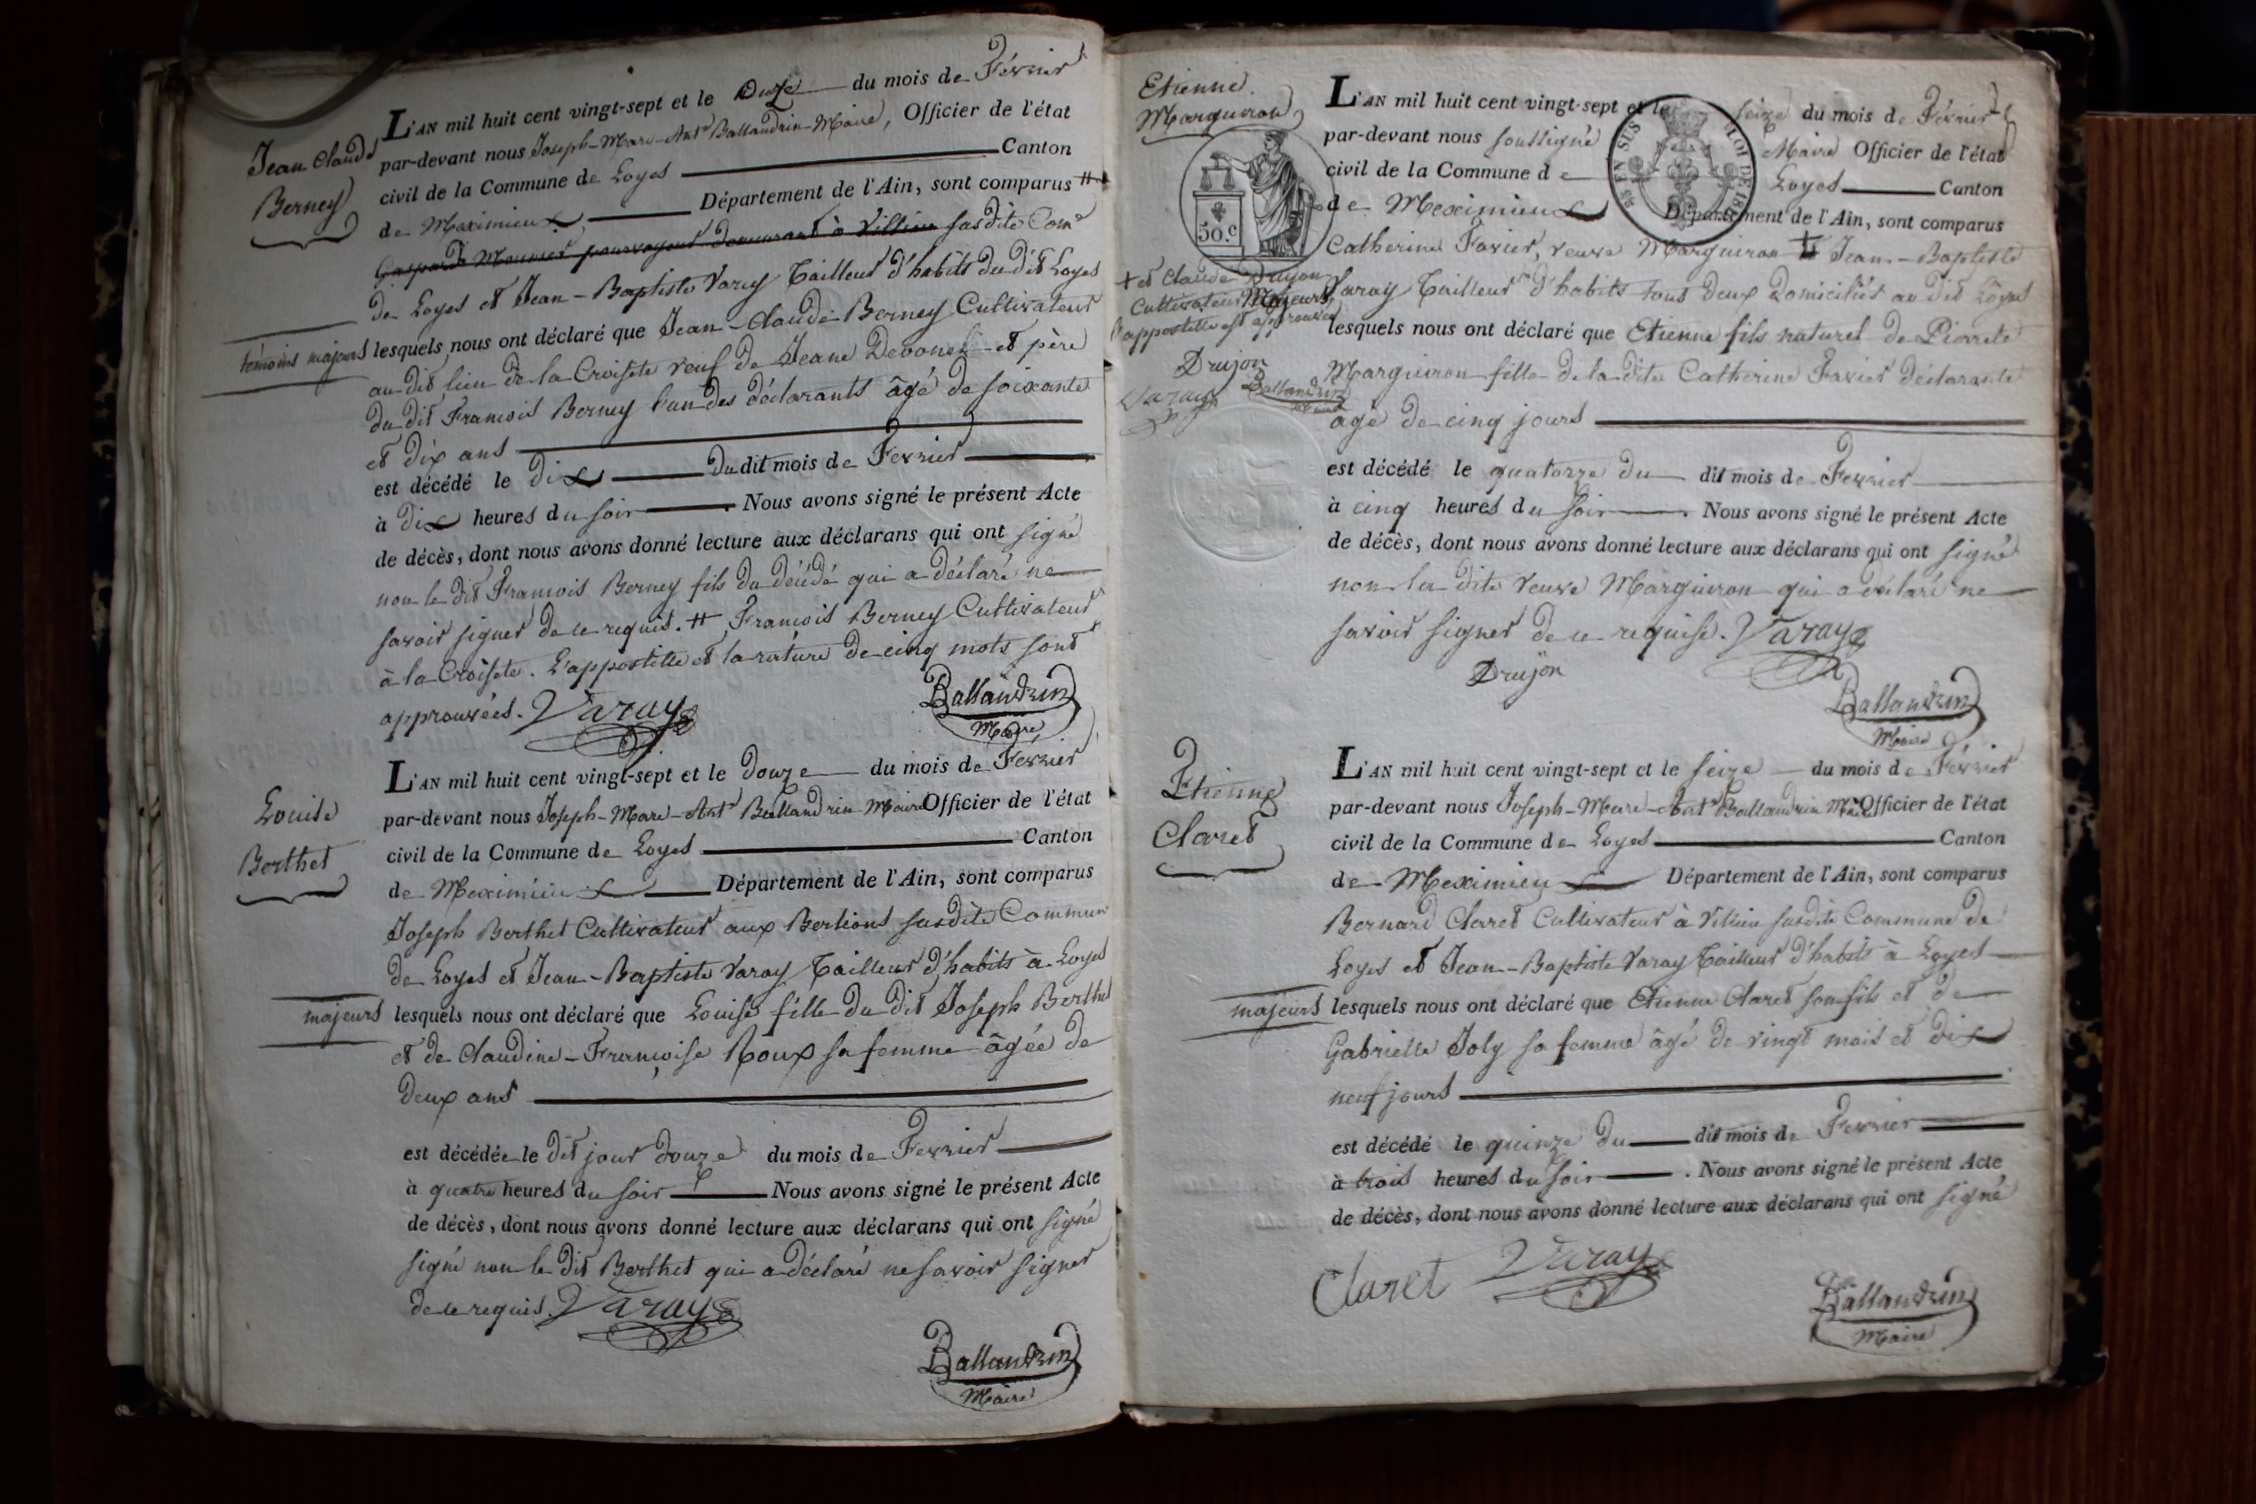 Jean Claude
Berney
L'AN mil huit cent vingt-sept et le onze du mois de Février
par-devant nous Joseph-Marie-Ante Ballandrin-Maire, Officier de l'état
civil de la Commune de Loyes Canton
de Meximieux Département de l'Ain, sont comparus #
Gaspard Meunier pourvoyeur demeurant à Villieu susdite Come
de Loyes et Jean-Baptiste Varay Tailleur d'habits du dit Loyes
témoins majeurs
lesquels nous ont déclaré que Jean-Claude Berney Cultivateur
au dit lieu de la Croisete veuf de Jeane et père
du dit Francois Berney l'un des déclarants âgé de soixante
et dix ans
est décédé le dix du dit mois de Fevrier
à dix heures du soir . Nous avons signé le présent Acte
de décès, dont nous avons donné lecture aux déclarans qui ont signé
non le dit Francois Berney fils du décédé qui a déclaré ne
savoir signer de ce requis. # Francois Berney Cultivateur
à la Croisete. L'appostille et la rature de cinq mots sont
approuvées. Varay
Ballandrin
Maire
Louise
Berthet
L'AN mil huit cent vingt-sept et le douze du mois de Février
par-devant nous Joseph-Marie-Ante Ballandrin-Maire Officier de l'état
civil de la Commune de Loyes Canton
de Meximieux Département de l'Ain, sont comparus
Joseph Berthet Cultivateur aux Bertions susdite Commune
de Loyes et Jean-Baptiste Varay Tailleur d'habits à Loyes
majeurs
lesquels nous ont déclaré que Louise fille du dit Joseph Berthet
et de Claudine-Françoise Roux sa femme âgée de
deux ans
est décédée le dit jour douze du mois de Fevrier
à quatre heures du soir Nous avons signé le présent Acte
de décès, dont nous avons donné lecture aux déclarans qui ont signé
signé non le dit Berthet qui a déclaré ne savoir signer
de ce requis. Varay
Ballandrin
Maire
Etienne
Marguiron
50.c
EN SUS
LOI DE 18
L'AN mil huit cent vingt-sept et le seize du mois de Février
par-devant nous soussigné Maire Officier de l'état
civil de la Commune de Loyes Canton
de Meximieux Département de l'Ain, sont comparus
Catherine Favier, veuve Marguiron + Jean-Baptiste
+ et Claude Drujon
Cultivateur Majeurs,
l'appostille est approuvée
Drujon
Varay
Ballandrin
Varay Tailleur d'habits tous deux domiciliés au dit Loyes
lesquels nous ont déclaré que Etienne fils naturel de Pierrete
Marguiron fille de la dite Catherine Favier déclarante
âgé de cinq jours
est décédé le quatorze du dit mois de Fevrier
à cinq heures du soir . Nous avons signé le présent Acte
de décès, dont nous avons donné lecture aux déclarans qui ont signé
non la dite veuve Marguiron qui a déclaré ne
savoir signer de ce requise. Varay
Drujon
Ballandrin
Maire
Etienne
Claret
L'AN mil huit cent vingt-sept et le seize du mois de Février
par-devant nous Joseph-Marie-Ante Ballandrin Maire Officier de l'état
civil de la Commune de Loyes Canton
de Meximieux Département de l'Ain, sont comparus
Bernard Claret Cultivateur à Villieu susdite Commune de
Loyes et Jean-Baptiste Varay Tailleur d'habits à Loyes
majeurs
lesquels nous ont déclaré que Etienne Claret son fils et de
Gabrielle Joly sa femme âgé de vingt mois et dix
neuf jours
est décédé le quinze du dit mois de Fevrier
à trois heures du soir . Nous avons signé le présent Acte
de décès, dont nous avons donné lecture aux déclarans qui ont signé
Claret Varay
Ballandrin
Maire